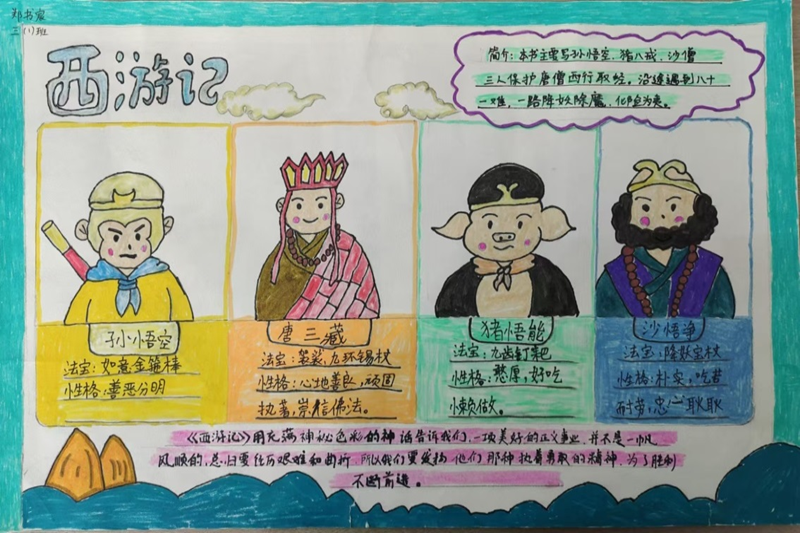 邓书宸
三(1)班
西游记
简介:本书主要写孙悟空、猪八戒、沙僧
三人保护唐僧西行取经,沿途遇到八十
一难,一路降妖除魔,化险为夷。
孙小悟空
法宝:如意金箍棒
性格:善恶分明
唐三藏
法宝:袈裟,九环锡杖
性格:心地善良,顽固
执著,崇信佛法。
猪悟能
法宝:九齿钉耙
性格:憨厚,好吃
懒做。
沙悟净
法宝:降妖宝杖
性格:朴实,吃苦
耐劳,忠心耿耿
《西游记》用充满神秘色彩的神话告诉我们,一项美好的正义事业,并不是一帆
风顺的,总归要经历艰难和曲折,所以我们要发扬他们那种执着勇敢的精神,为了胜利
不断前进。